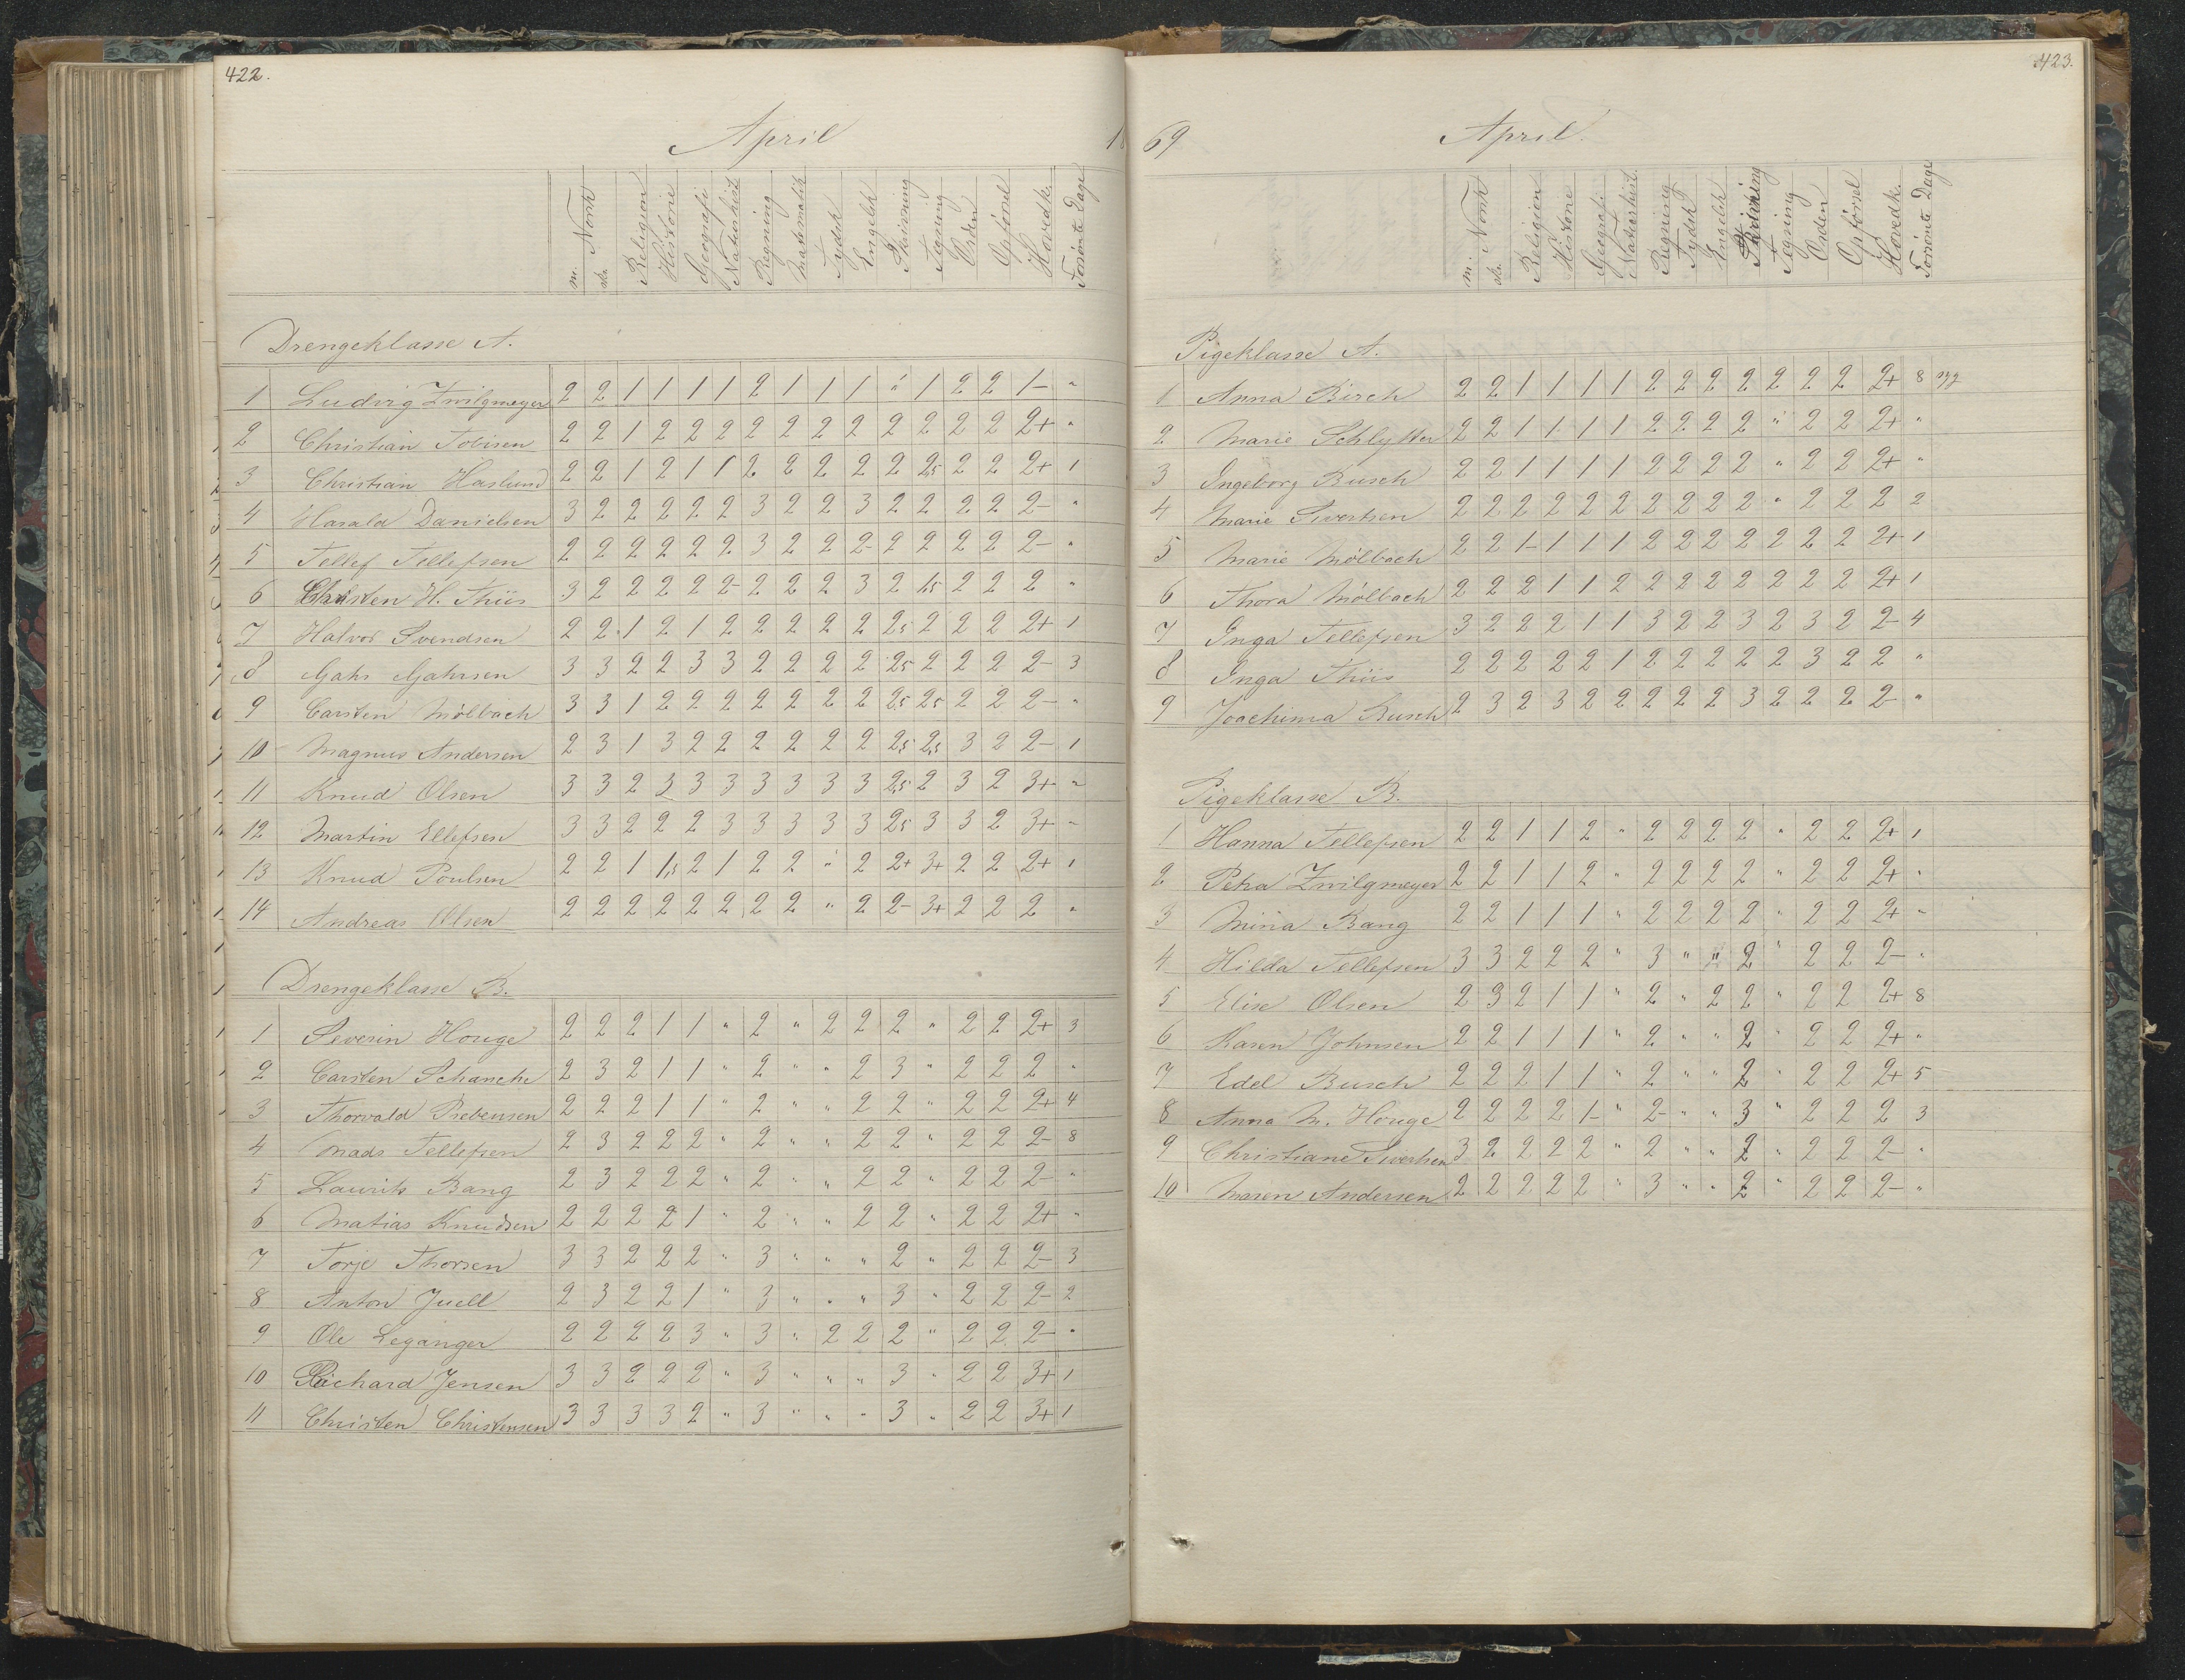 422.
April 18
m. Norsk sk. Religion Historie Geografi Naturhist Regning Matematik Tydsk Engelsk Skrivning Tegning Orden Opførsel Hovedk. Forsømte Dage
Drengeklasse A.
1 Ludvig Zwilgmeyer 2 2 1 1 1 1 2 1 1 1 " 1 2 2 1- "
2 Christian Tobisen 2 2 1 2 2 2 2 2 2 2 2 2 2 2 2+ "
3 Christian Haslund 2 2 1 2 1 1 2 2 2 2 2 2,5 2 2 2+ 1
4 Harald Danielsen 3 2 2 2 2 2 3 2 2 3 2 2 2 2 2- "
5 Tellef Tellefsen 2 2 2 2 2 2 3 2 2 2- 2 2 2 2 2- "
6 Christen H. Thiis 3 2 2 2 2 2- 2 2 2 3 2 1,5 2 2 2 "
7 Halvor Svendsen 2 2 1 2 1 2 2 2 2 2 2,5 2 2 2 2+ 1
8 Gahr Gahrsen 3 3 2 2 3 3 2 2 2 2 2,5 2 2 2 2- 3
9 Carsten Mölbach 3 3 1 2 2 2 2 2 2 2 2,5 2,5 2 2 2- "
10 Magnus Andersen 2 3 1 3 2 2 2 2 2 2 2,5 2,5 3 2 2- 1
11 Knud Olsen 3 3 2 3 3 3 3 3 3 3 2,5 2 3 2 3+ "
12 Martin Ellefsen 3 3 2 2 2 3 3 3 3 3 2,5 3 3 2 3+ "
13 Knud Poulsen 2 2 1 1,5 2 1 2 2 " 2 2+ 3+ 2 2 2+ 1
14 Andreas Olsen 2 2 2 2 2 2 2 2 " 2 2- 3+ 2 2 2 "
Drengeklasse B.
1 Severin Houge 2 2 2 1 1 " 2 " 2 2 2 " 2 2 2+ 3
2 Carsten Schanche 2 3 2 1 1 " 2 " " 2 3 " 2 2 2 "
3 Thorvald Prebensen 2 2 2 1 1 " 2 " " 2 2 " 2 2 2+ 4
4 Mads Tellefsen 2 3 2 2 2 " 2 " " 2 2 " 2 2 2- 8
5 Laurits Bang 2 3 2 2 2 " 2 " " 2 2 " 2 2 2- "
6 Matias Knudsen 2 2 2 2 1 " 2 " " 2 2 " 2 2 2+ "
7 Torje Thorsen 3 3 2 2 2 " 3 " " " 2 " 2 2 2- 3
8 Anton Juell 2 3 2 2 1 " 3 " " " 3 " 2 2 2- 2
9 Ole Leganger 2 2 2 2 3 " 3 " 2 2 2 " 2 2 2- "
10 Richard Jensen 3 3 2 2 2 " 3 " " " 3 " 2 2 3+ 1
11 Christen Christensen 3 3 3 3 2 " 3 " " " 3 " 2 2 3+ 1
423.
69 April.
m. Norsk sk. Religion Historie Geografi Naturhist. Regning Tydsk Engelsk Skrivning Tegning Orden Opførsel Hovedk. Forsømte Dage
Pigeklasse A.
1 Anna Birch 2 2 1 1 1 1 2 2 2 2 2 2 2 2+ 8
2 Marie Schlytter 2 2 1 1 1 1 2 2 2 2 " 2 2 2+ "
3 Ingeborg Busch 2 2 1 1 1 1 2 2 2 2 " 2 2 2+ "
4 Marie Sivertsen 2 2 2 2 2 2 2 2 2 2 " 2 2 2 2
5 Marie Mölbach 2 2 1- 1 1 1 2 2 2 2 2 2 2 2+ 1
6 Thora Mölbach 2 2 2 1 1 2 2 2 2 2 2 2 2 2+ 1
7 Inga Tellefsen 3 2 2 2 1 1 3 2 2 3 2 3 2 2- 4
8 Inga Thiis 2 2 2 2 2 1 2 2 2 2 2 3 2 2 "
9 Joachima Busch 2 3 2 3 2 2 2 2 2 3 2 2 2 2- "
Pigeklasse B.
1 Hanna Tellefsen 2 2 1 1 2 " 2 2 2 2 " 2 2 2+ 1
2 Petra Zwilgmeyer 2 2 1 1 2 " 2 2 2 2 " 2 2 2+ "
3 Mina Bang 2 2 1 1 1 " 2 2 2 2 " 2 2 2+ "
4 Hilda Tellefsen 3 3 2 2 2 " 3 " " 2 " 2 2 2- "
5 Elise Olsen 2 3 2 1 1 " 2 " 2 2 " 2 2 2+ 8
6 Karen Johnsen 2 2 1 1 1 " 2 " " 2 " 2 2 2+ "
7 Edel Busch 2 2 2 1 1 " 2 " " 2 " 2 2 2+ 5
8 Anna M. Houge 2 2 2 2 1- " 2- " " 3 " 2 2 2 3
9 Christiane Sivertsen 3 2 2 2 2 " 2 " " 2 " 2 2 2- "
10 Maren Andersen 2 2 2 2 2 " 3 " " 2 " 2 2 2- "